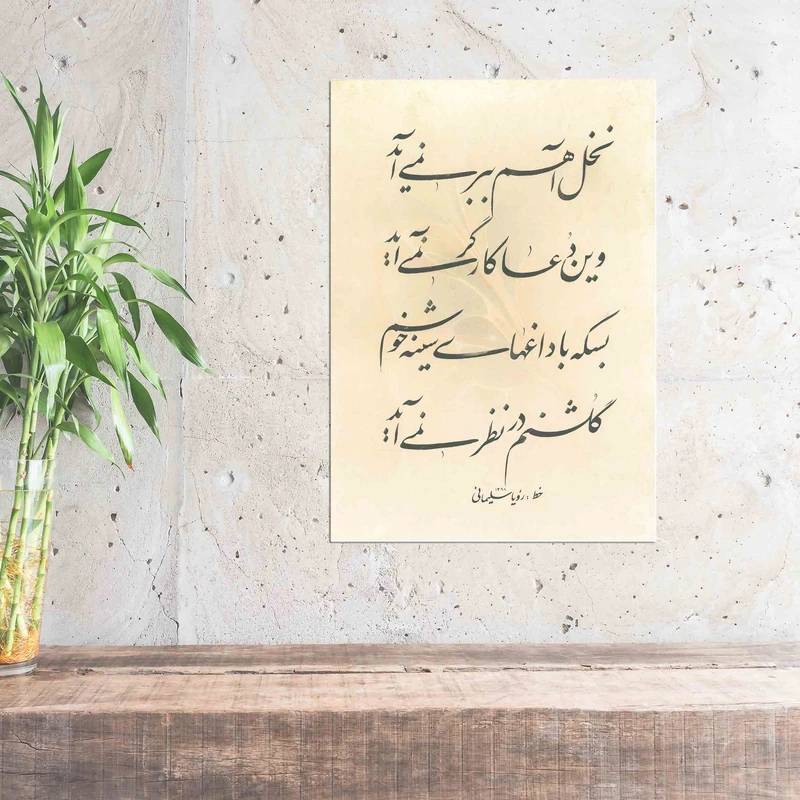 نخل آهم ببر نمی‌آید
وین دعا کارگر نمی‌آید
بسکه با داغهای سینه خوشم
گلشنم در نظر نمی‌آید
خط : رؤیا سلیمانی